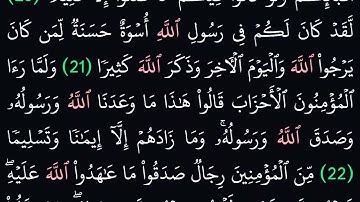 لَّقَدۡ كَانَ لَكُمۡ فِي رَسُولِ ٱللَّهِ أُسۡوَةٌ حَسَنَةٞ لِّمَن كَانَ
يَرۡجُواْ ٱللَّهَ وَٱلۡيَوۡمَ ٱلۡأٓخِرَ وَذَكَرَ ٱللَّهَ كَثِيرٗا (21) وَلَمَّا رَءَا
ٱلۡمُؤۡمِنُونَ ٱلۡأَحۡزَابَ قَالُواْ هَٰذَا مَا وَعَدَنَا ٱللَّهُ وَرَسُولُهُۥ
وَصَدَقَ ٱللَّهُ وَرَسُولُهُۥۚ وَمَا زَادَهُمۡ إِلَّآ إِيمَٰنٗا وَتَسۡلِيمٗا
(22) مِّنَ ٱلۡمُؤۡمِنِينَ رِجَالٞ صَدَقُواْ مَا عَٰهَدُواْ ٱللَّهَ عَلَيۡهِۖ